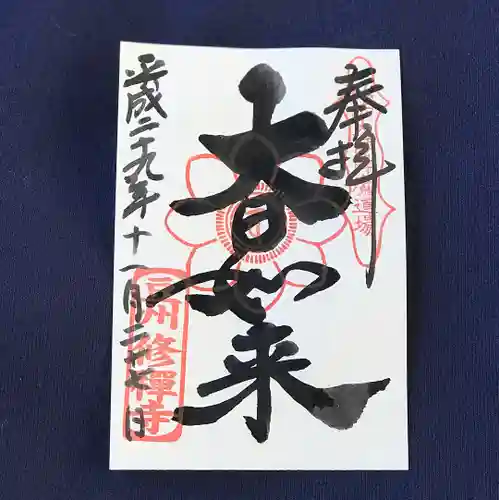 奉拝
道場
大日如来
平成二十九年十一月二十七日
信州修禅寺